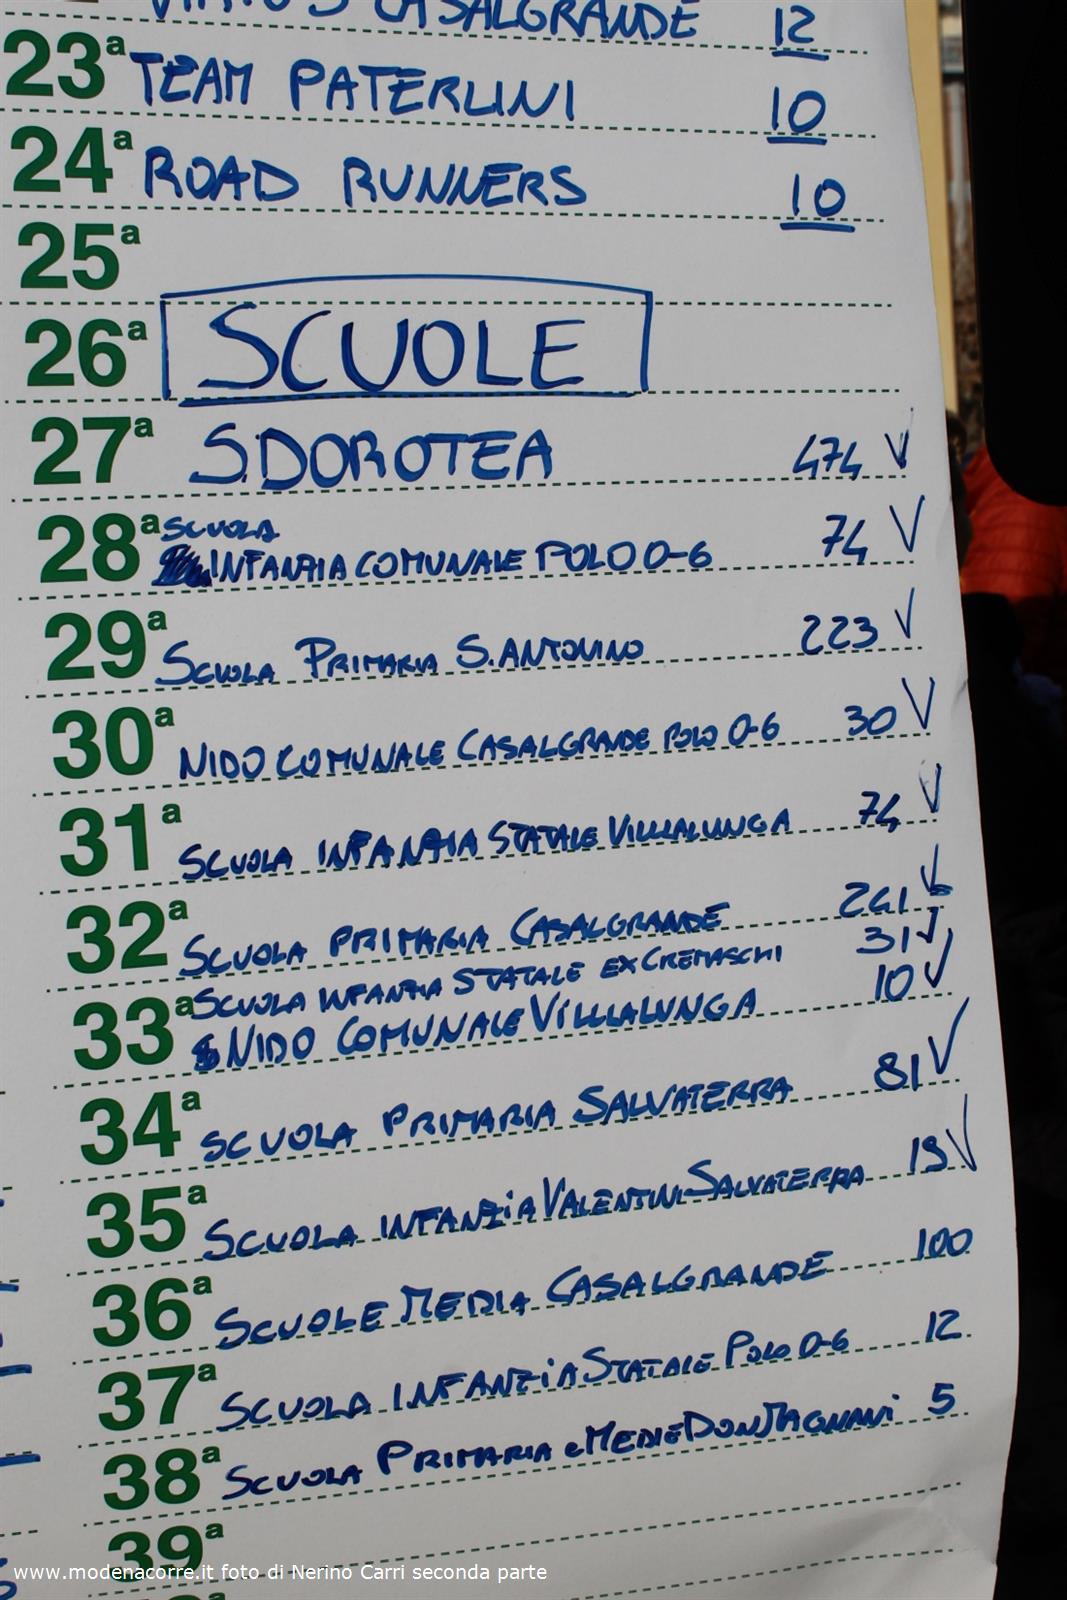 CASALGRANDE 12
23ª TEAM PATERLINI 10
24ª ROAD RUNNERS 10
25ª
26ª SCUOLE
27ª S.DOROTEA 474 V
28ª SCUOLA
INFANZIA COMUNALE POLO 0-6 74 V
29ª SCUOLA PRIMARIA S.ANTONINO 223 V
30ª NIDO COMUNALE CASALGRANDE POLO 0-6 30 V
31ª SCUOLA INFANZIA STATALE VILLALUNGA 74 V
32ª SCUOLA PRIMARIA CASALGRANDE 241 V
33ª SCUOLA INFANZIA STATALE EX CREMASCHI 31 V
NIDO COMUNALE VILLALUNGA 10 V
34ª SCUOLA PRIMARIA SALVATERRA 81 V
35ª SCUOLA INFANZIA VALENTINI SALVATERRA 19 V
36ª SCUOLE MEDIA CASALGRANDE 100
37ª SCUOLA INFANZIA STATALE POLO 0-6 12
38ª SCUOLA PRIMARIA e MEDIE DON MAGNANI 5
39ª
www.modenacorre.it foto di Nerino Carri seconda parte